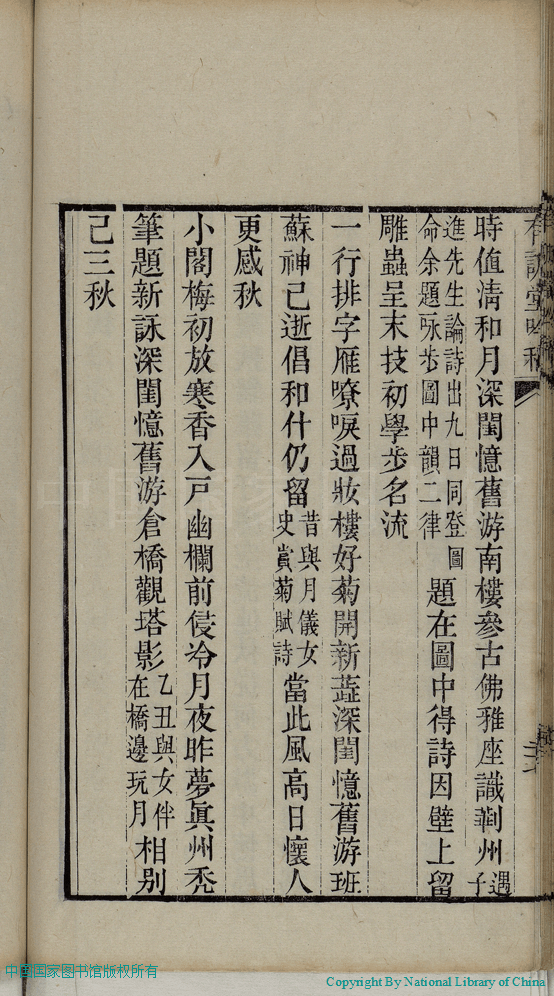 有誠堂吟稿
時值清和月深閨憶舊游南樓參古佛雅座識荊州遇子
進先生論詩出九日同登圖命余題咏步圖中韻二律題在圖中得詩因壁上留
雕蟲呈末技初學步名流
一行排字雁嘹唳過妝樓好菊開新蕋深閨憶舊游班
蘇神已逝倡和什仍留昔與月儀女史賞菊賦詩當此風高日懷人
更感秋
小閣梅初放寒香入戸幽欄前侵冷月夜昨夢眞州禿
筆題新詠深閨憶舊游倉橋觀塔影乙丑與女伴在橋邊玩月相別
已三秋
中国国家图书馆版权所有
Copyright By National Library of China